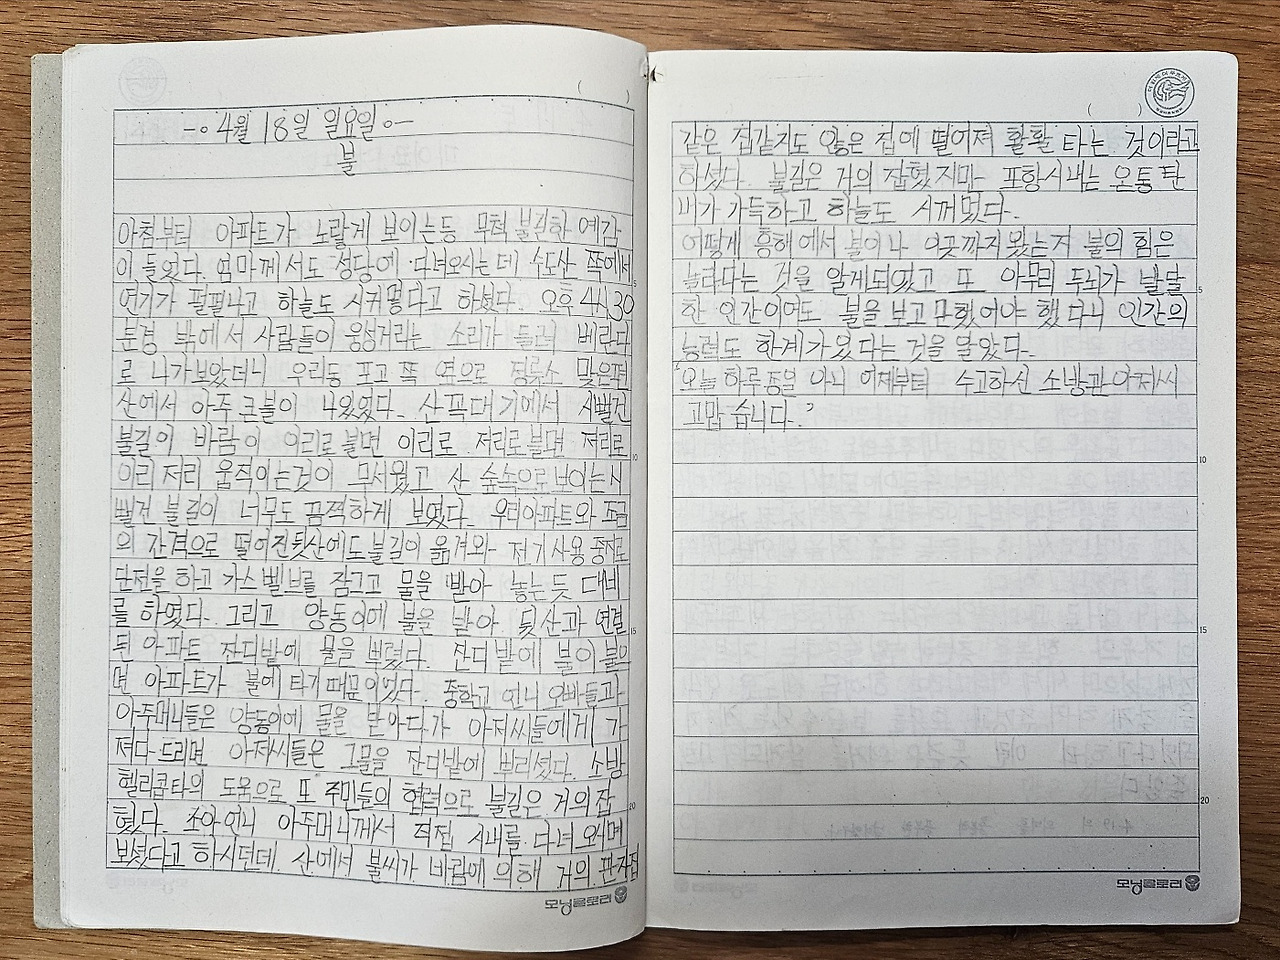 -o 4월 18일 일요일 o-
불
아침부터 아파트가 노랗게 보이는등 무척 불길한 예감
이 들었다. 엄마께서도 성당에 다녀오시는데 수도산 쪽에서
연기가 펄펄나고 하늘도 시커멓다고 하셨다. 오후 4시 30
분경 밖에서 사람들이 웅성거리는 소리가 들려 베란다
로 나가보았더니 우리동 포고 쪽 옆으로 정류소 맞은편
산에서 아주 큰불이 나있었다. 산꼭대기에서 시뻘건
불길이 바람이 이리로 불면 이리로 저리로 불면 저리로
이리 저리 움직이는것이 무서웠고 산 숲속으로 보이는 시
뻘건 불길이 너무도 끔찍하게 보였다. 우리아파트와 조금
의 간격으로 떨어진 뒷산에도 불길이 옮겨와 전기사용 중지로
단전을 하고 가스 벨브를 잠그고 물을 받아 놓는 듯 대비
를 하였다. 그리고 양동이에 물을 받아 뒷산과 연결
된 아파트 잔디밭에 물을 뿌렸다. 잔디밭에 불이 붙으
면 아파트가 불에 타기 때문이었다. 중학교 언니 오빠들과
아주머니들은 양동이에 물을 받아다가 아저씨들에게 가
져다 드리면 아저씨들은 그물을 잔디밭에 뿌리셨다. 소방
헬리콥타의 도움으로 또 주민들의 협력으로 불길은 거의 잡
혔다. 조아언니 아주머니께서 직접 시내를 다녀 오시며
보셨다고 하시던데 산에서 불씨가 바람에 의해 거의 판자집
같은 집같지도 않은 집에 떨어져 활활 타는 것이라고
하셨다. 불길은 거의 잡혔지만 포항시내는 온통 탄
내가 가득하고 하늘도 시꺼멓다.
어떻게 흥해에서 불이나 이곳까지 왔는지 불의 힘은
놀라다는 것을 알게되었고 또 아무리 두뇌가 발달
한 인간이어도 불을 보고만 했어야 했다니 인간의
능력도 한계가 있다는 것을 알았다.
'오늘 하루종일 아니 어제부터 수고하신 소방관 아저씨
고맙습니다.'
모닝글로리
모닝글로리